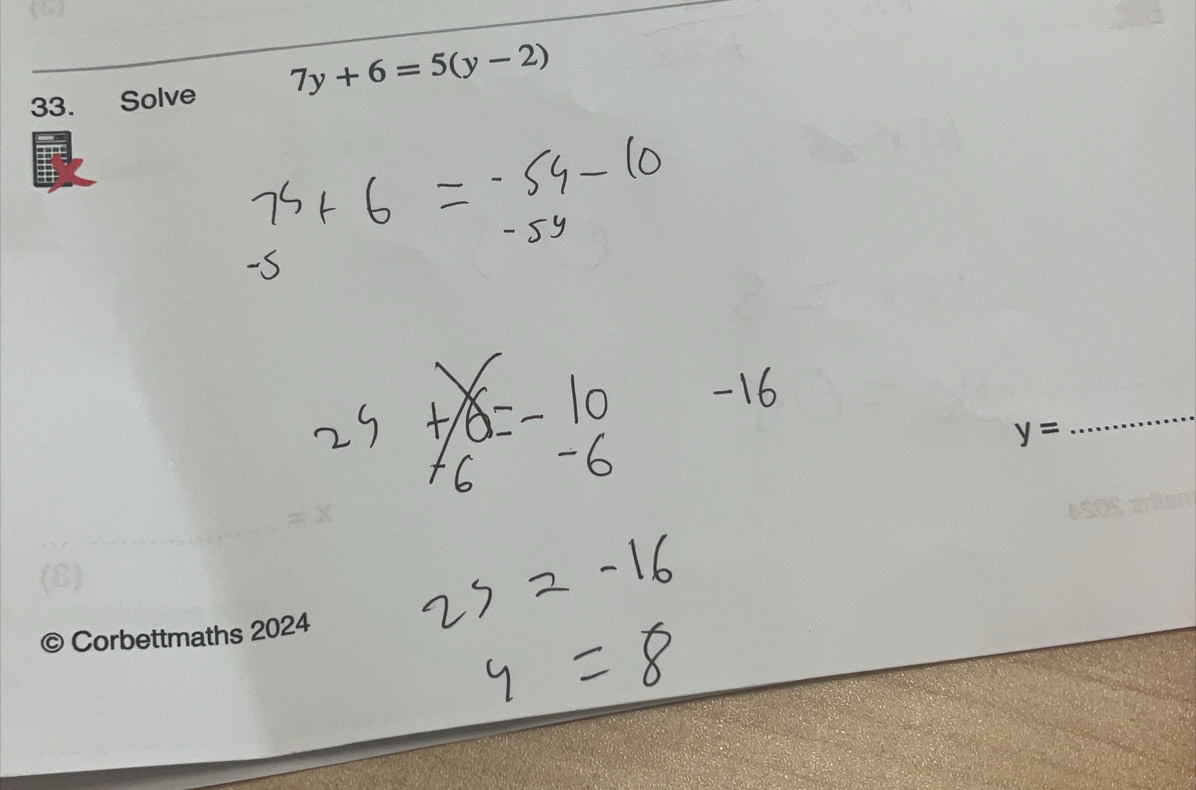 33. Solve 7y + 6 = 5(y − 2)
7y + 6 = - 5y - 10
-5 - 5y
2y + 6 = - 10 -16
+6 -6
y = ....................
= x
(3)
2y = -16
© Corbettmaths 2024
y = 8